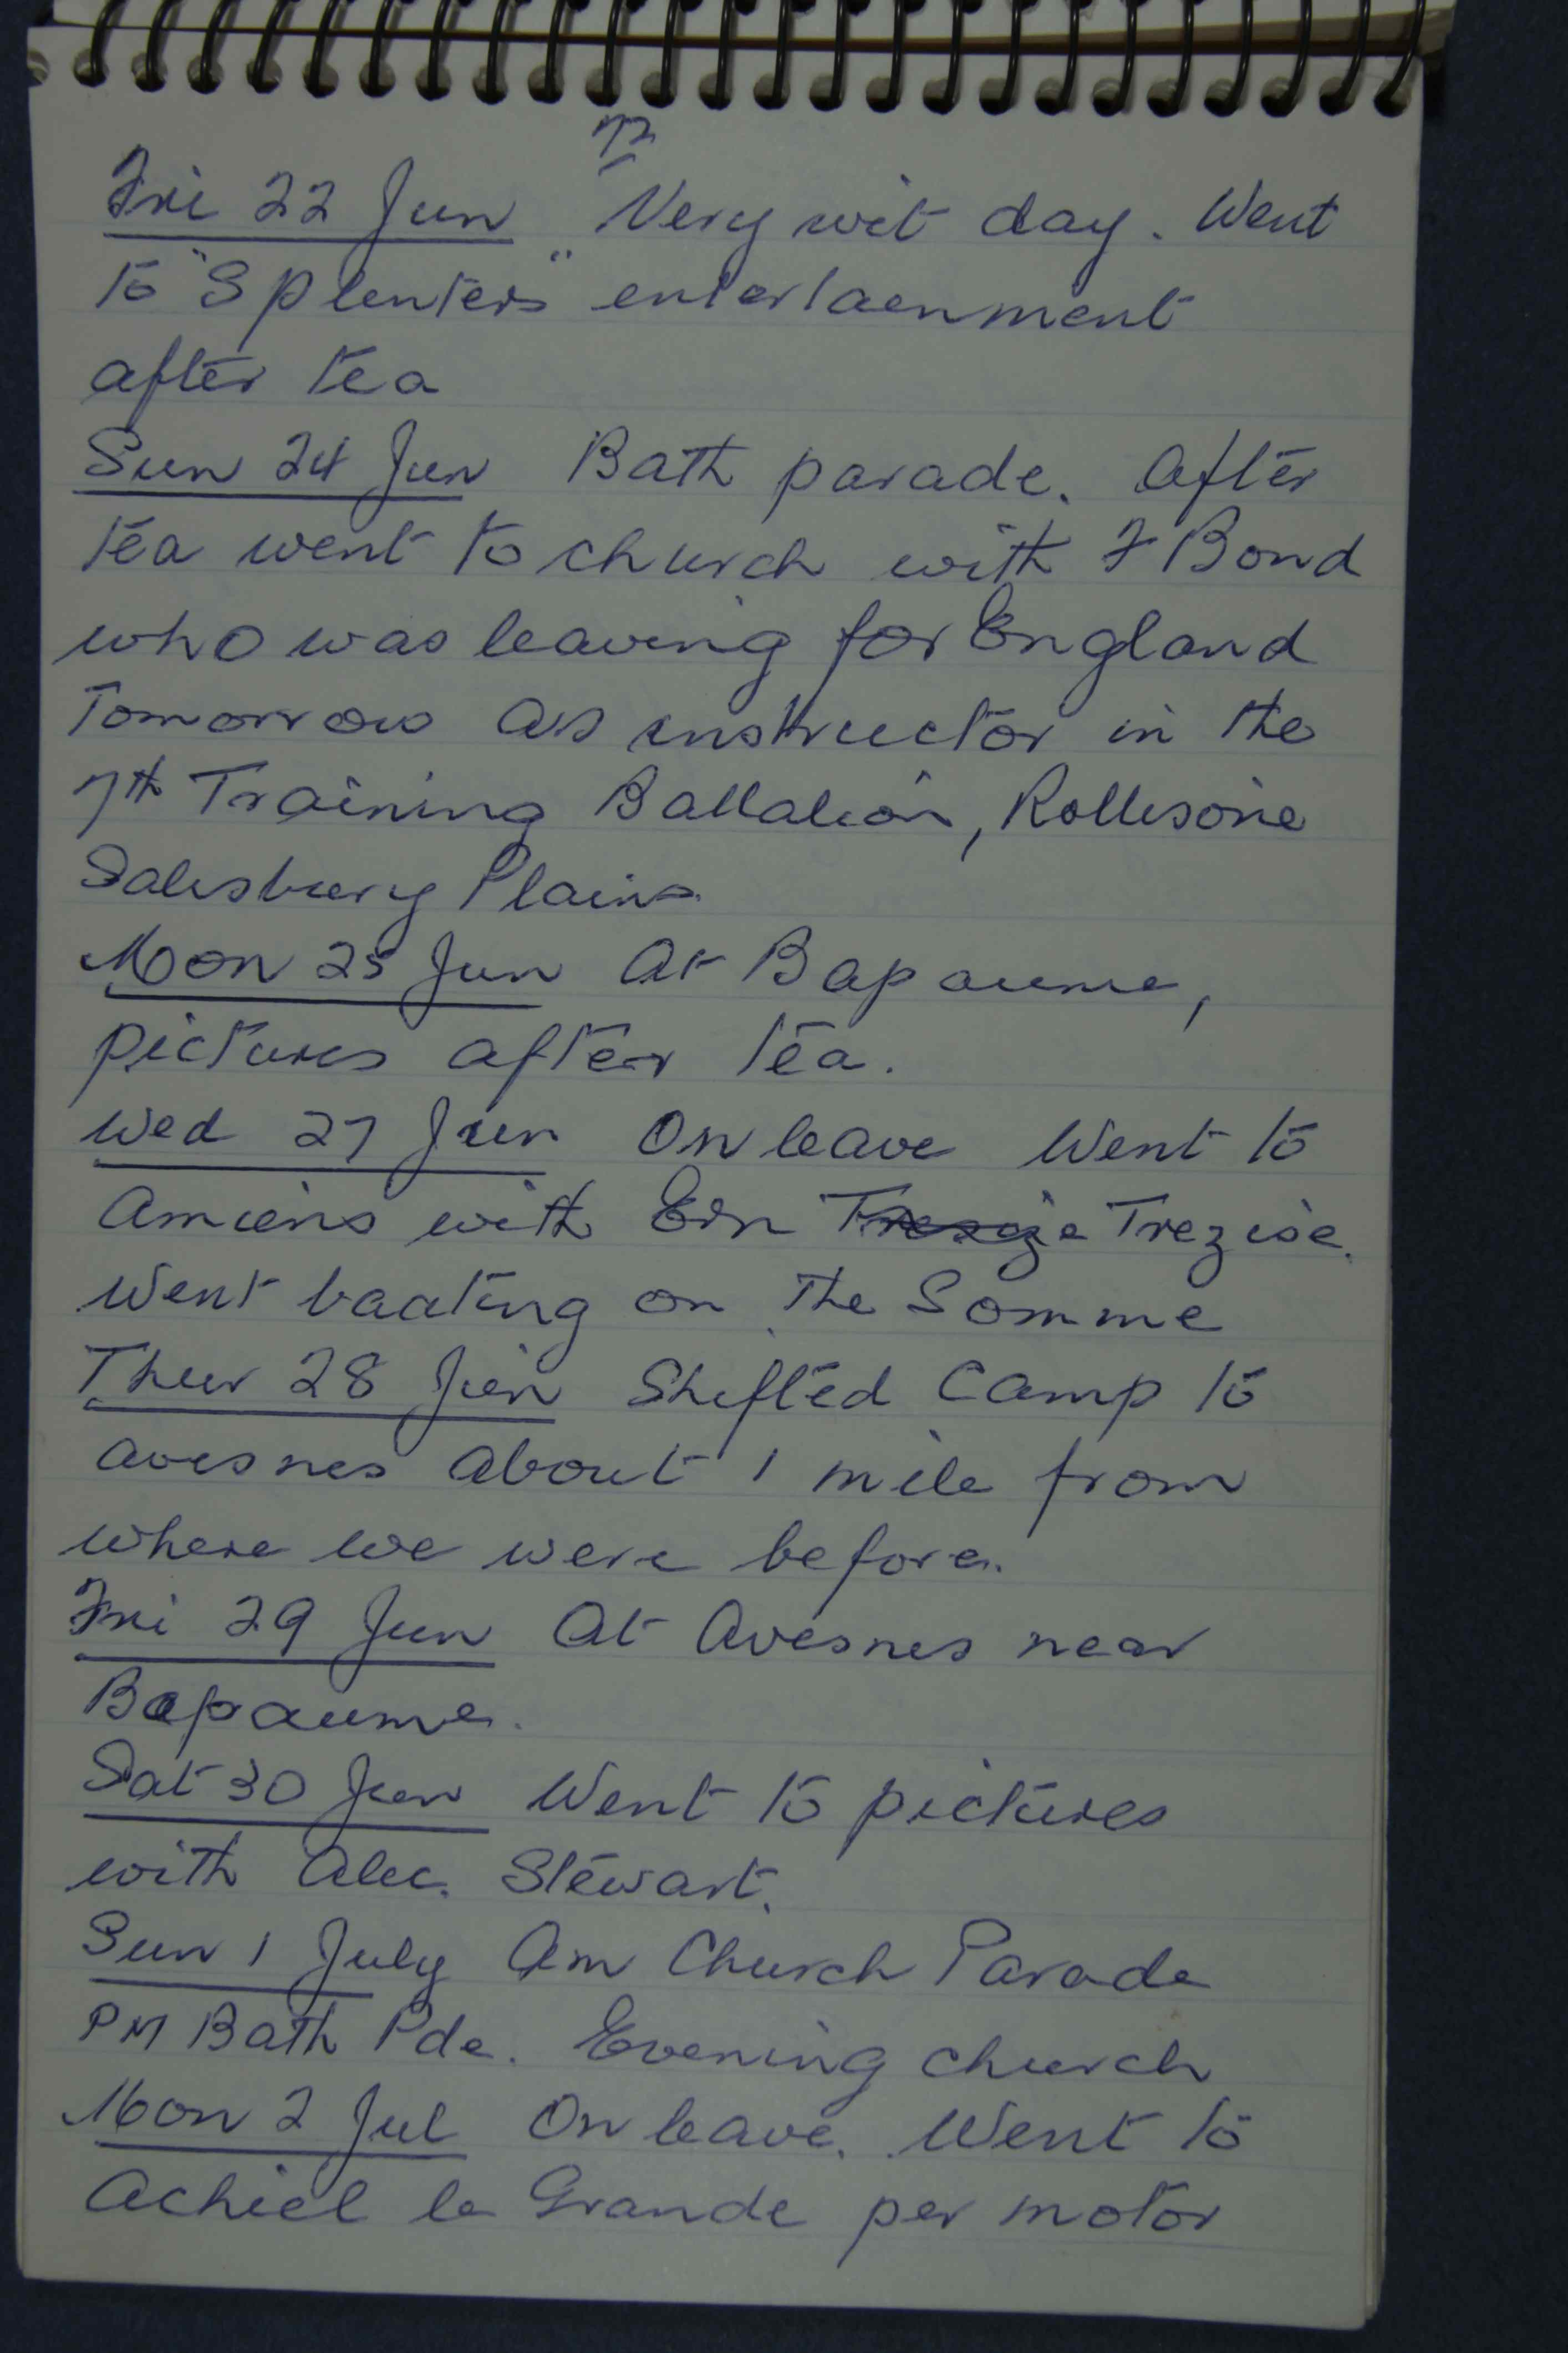 72
Fri 22 Jun Very wet day. Went
to "Splinters" entertainment
after tea
Sun 24 Jun Bath parade. After
tea went to church with F Bond
who was leaving for England
Tomorrow as instructor in the
7th Training Battalion, Rollestone
Salisbury Plains.
Mon 25 Jun At Bapaume,
pictures after tea.
Wed 27 Jun On leave Went to
Amiens with Ern Trezise.
Went boating on the Somme
Thur 28 Jun Shifted Camp to
Avesnes about 1 mile from
where we were before.
Fri 29 Jun At Avesnes near
Bapaume.
Sat 30 Jun Went to pictures
with Alec. Stewart.
Sun 1 July Am Church Parade
PM Bath Pde. Evening church
Mon 2 Jul On leave. Went to
Achiel le Grande per motor